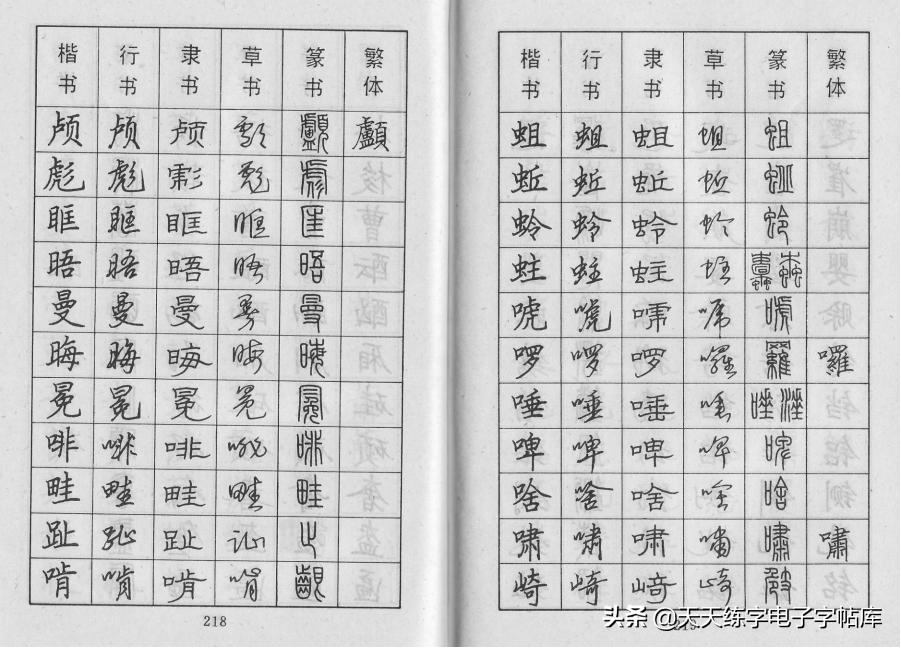 楷书 行书 隶书 草书 篆书 繁体
颅 颅 颅 颅 顱 顱
彪 彪 彪 彪 彪
眶 眶 眶 眶 匡
晤 晤 晤 晤 晤
曼 曼 曼 曼 曼
晦 晦 晦 晦 晦
冕 冕 冕 冕 冕
啡 啡 啡 啡
畦 畦 畦 畦 畦
趾 趾 趾 趾 止
啃 啃 啃 啃
218
楷书 行书 隶书 草书 篆书 繁体
蛆 蛆 蛆 蛆 蛆
蚯 蚯 蚯 蚯 蚯
蛉 蛉 蛉 蛉 蛉
蛀 蛀 蛀 蛀
唬 唬 唬 唬 唬
啰 啰 啰 囉 羅 囉
唾 唾 唾 唾 唾 涶
啤 啤 啤 啤
啥 啥 啥 啥 啥
啸 啸 啸 啸 嘯 嘯
崎 崎 崎 崎
头条 @天天练字电子字帖库